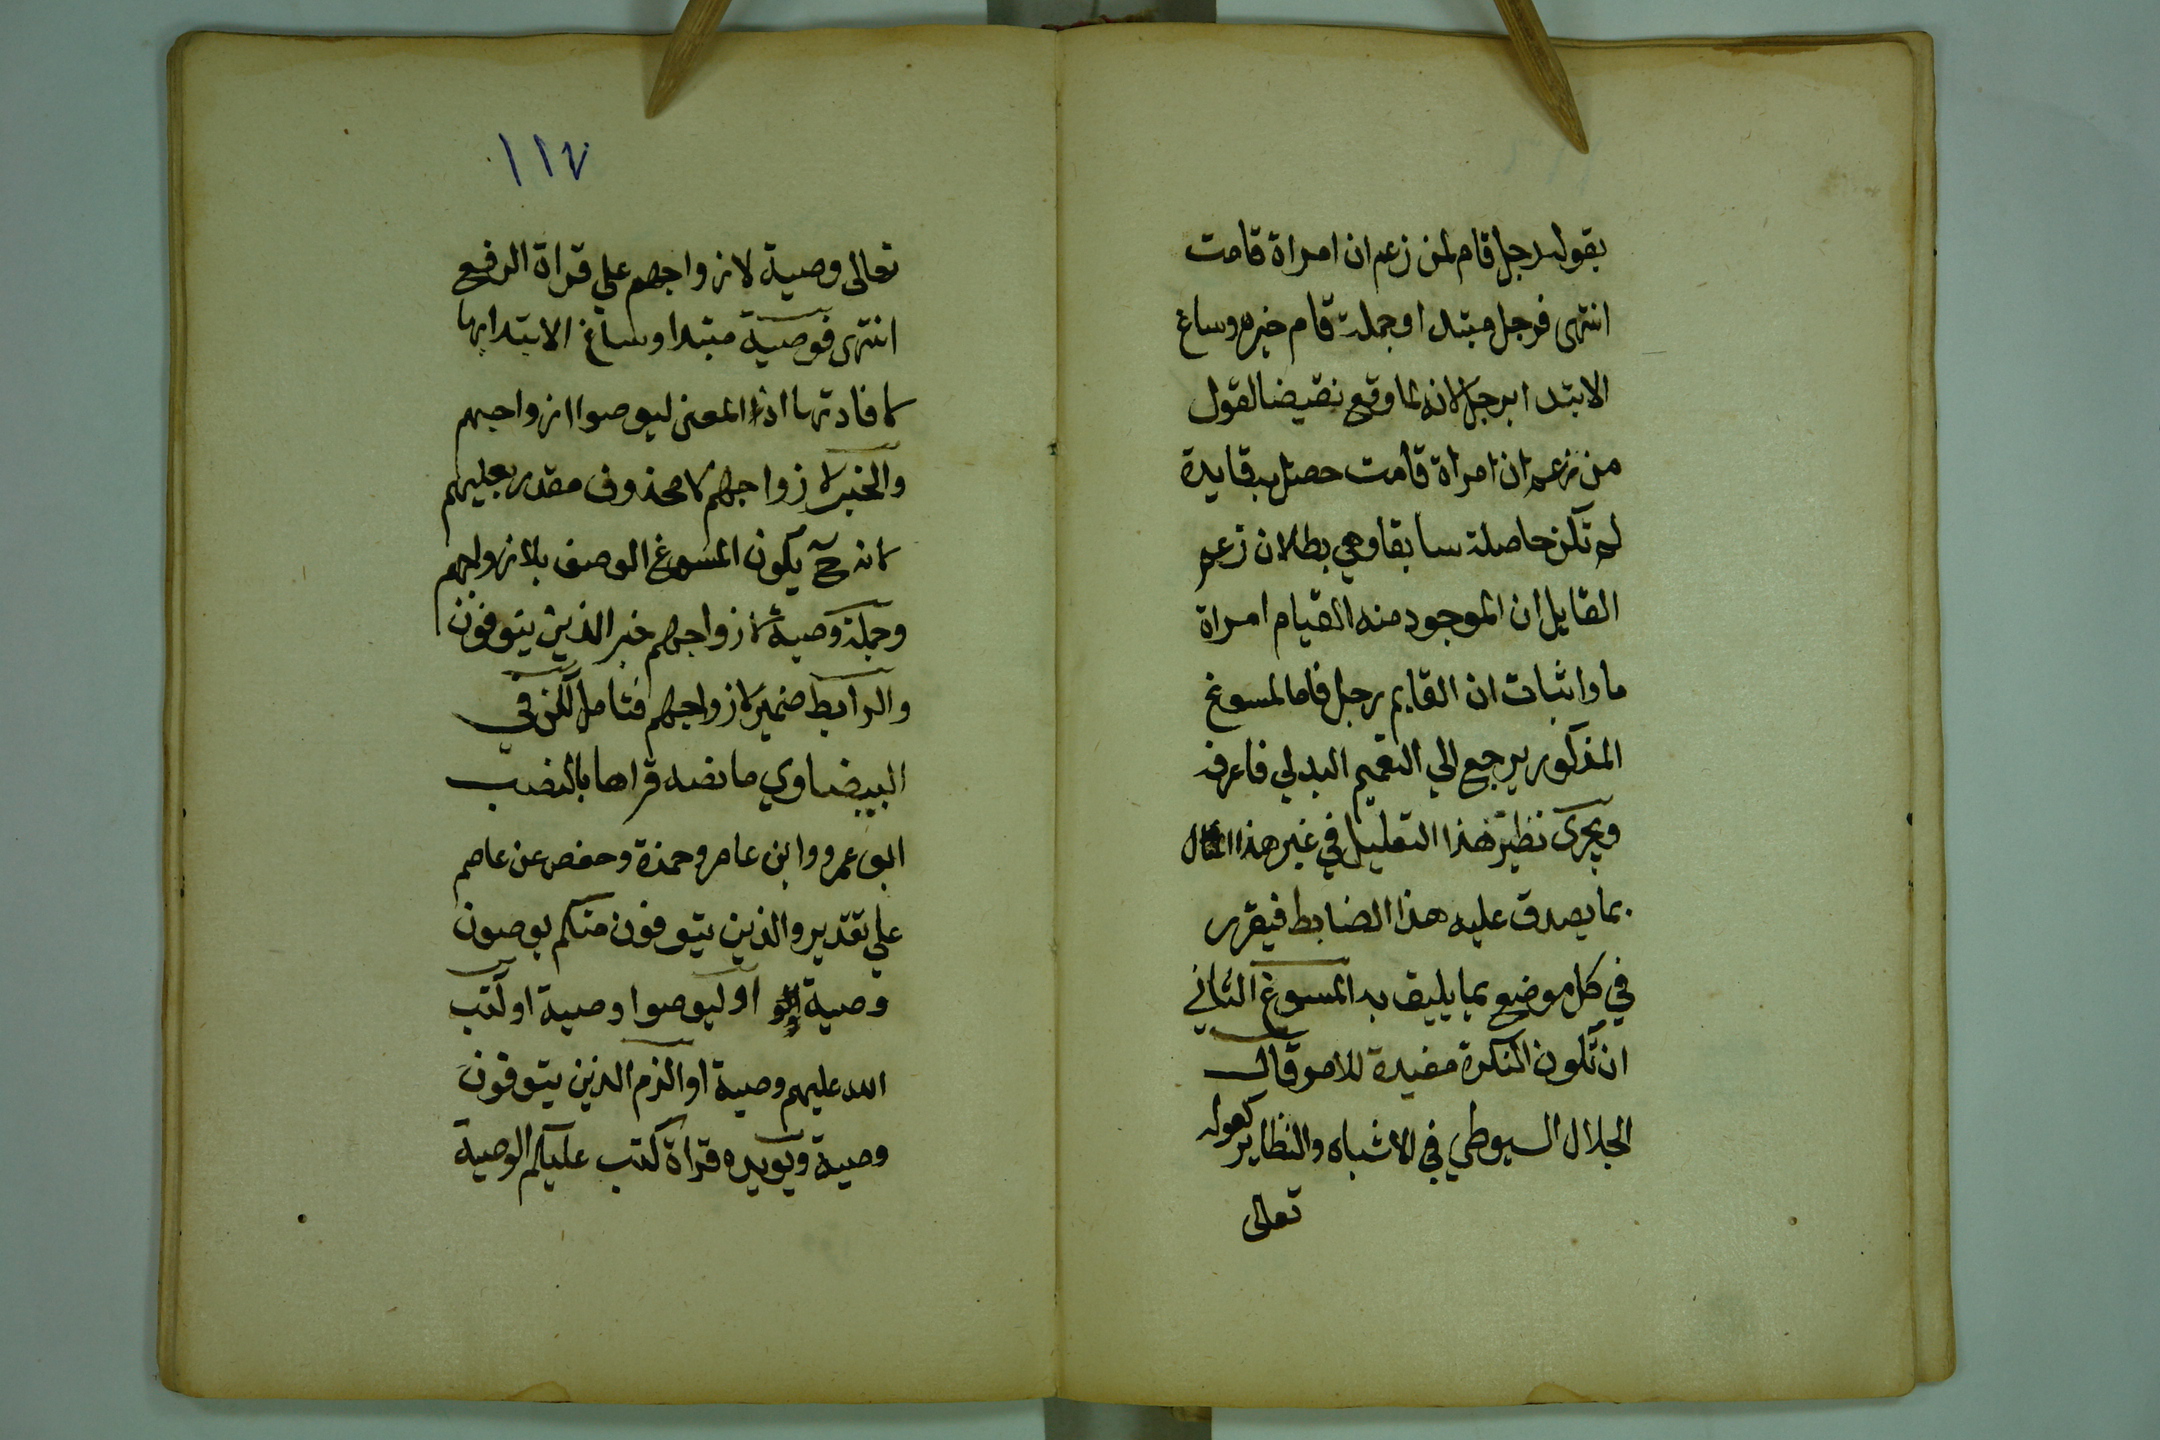 بقوله رجل قام لمن زعم ان امراة قامت
انتهى فرجل مبتدا وجملة قام خبره وساغ
الابتدا برجل لانه لما وقع نقيضا لقول
من زعم ان امراة قامت حصل به قايدة
لم تكن حاصلة سابقا وهي بطلان زعم
القايل ان الموجود منه القيام امراة
ما واثبات ان القايم رجل فاما المسوغ
المذكور يرجع الي التعميم البدلي فاعرفه
ويجري نظير هذا التعليل في غير هذا المثال
بما يصدق عليه هذا الضابط فيقرر
في كل موضع بما يليق به المسوغ الثاني
ان تكون النكرة مفيدة للامر قال
الجلال السيوطي في الاشباه والنظاير كقوله
تعالى
١١٧
تعالى وصية لازواجهم علي قراة الرفع
انتهى فوصية مبتدا وساغ الابتدا بها
لافادتها اذ المعنى ليوصوا ازواجهم
والخبر لازواجهم لا محذوف مقدر بعليهم
لانه ح يكون المسوغ الوصف بلازواجهم
وجملة وصية لازواجهم خبر الذين يتوفون
والرابط ضمير لازواجهم فتامل لكن في
البيضاوي ما نصه قراها بالنصب
ابو عمرو وابن عامر وحمزة وحفص عن عاصم
علي تقدير والذين يتوفون منكم يوصون
وصية او ليوصوا وصية او كتب
الله عليهم وصية او الزم الذين يتوفون
وصية ويويده قراة كتب عليكم الوصية